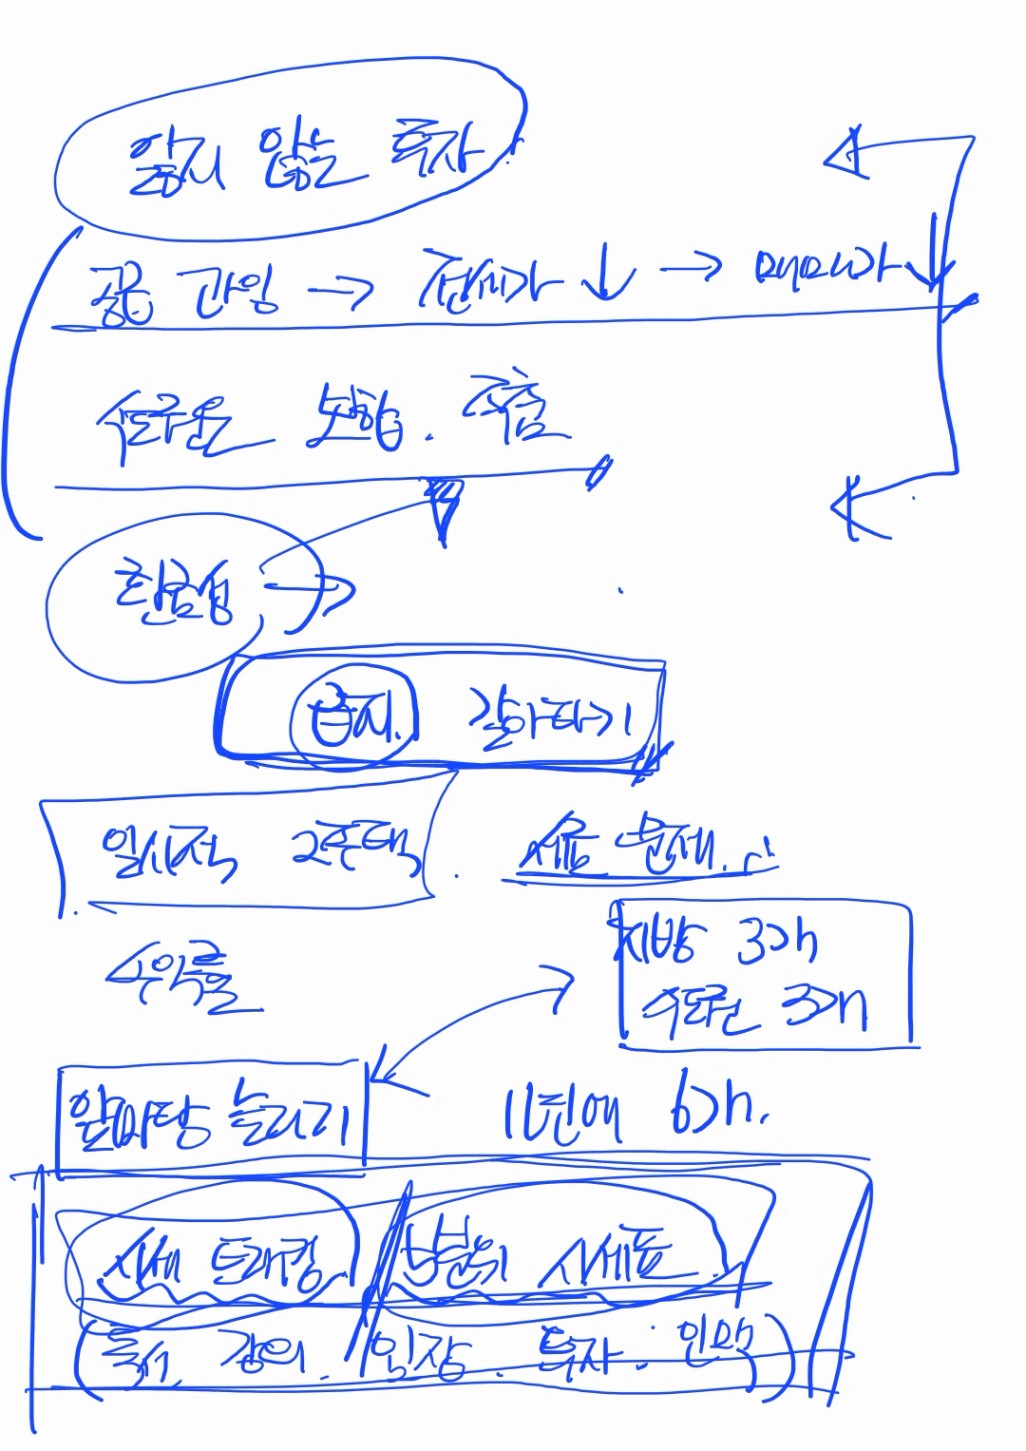 잃지 않는 투자.
공급 과잉 → 전세가 ↓ → 매매가 ↓
수도권 보합. 주춤
환금성 →
급지. 갈아타기
일시적 2주택. 세금 문제.
지방 3>h
수익률
수도권 3>h
앞마당 늘리기 1년에 6>h.
시세 트래킹 / 5분위 시세를
(독서. 강의. 임장. 투자. 인맥)